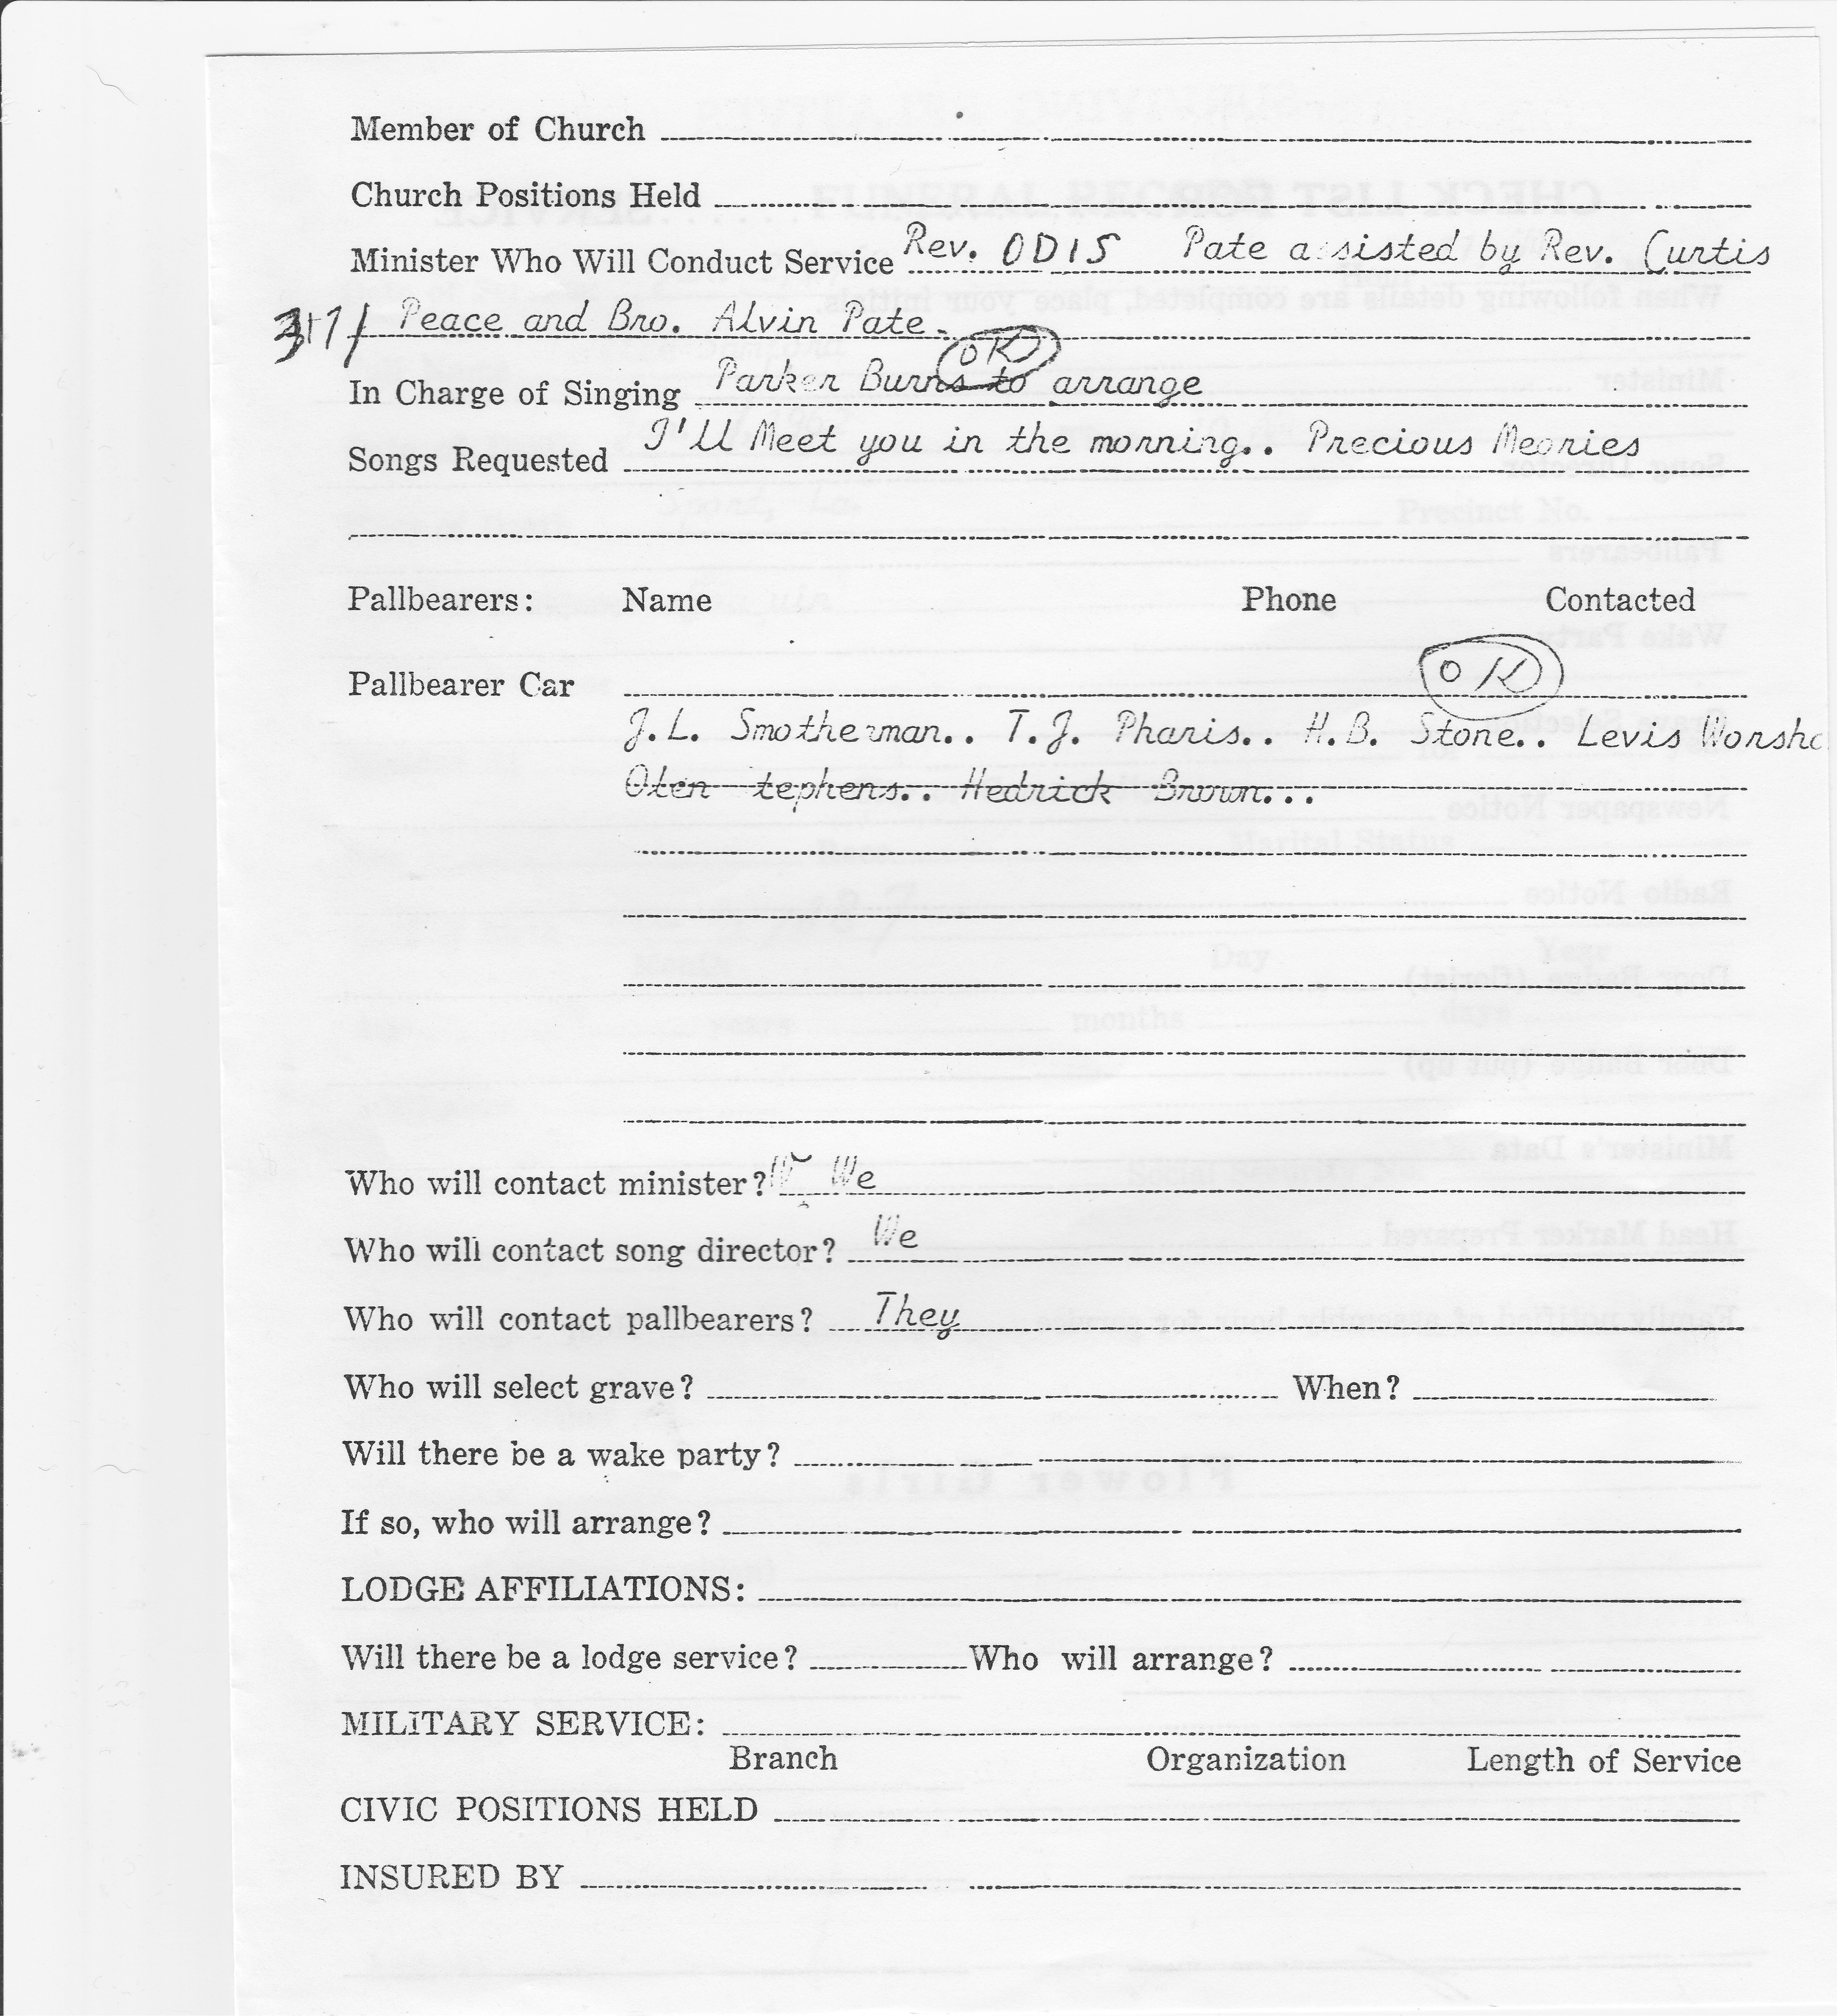 Member of Church
Church Positions Held
Minister Who Will Conduct Service Rev. ODIS Pate assisted by Rev. Curtis
Peace and Bro. Alvin Pate.
OK
In Charge of Singing Parker Burns to arrange
Songs Requested I'll Meet you in the morning.. Precious Meories
Pallbearers: Name Phone Contacted
Pallbearer Car OK
J.L. Smotherman.. T.J. Pharis.. H.B. Stone.. Levis Worsh
tephens.. Hedrick Brown...
Who will contact minister? We
Who will contact song director? We
Who will contact pallbearers? They
Who will select grave? When?
Will there be a wake party?
If so, who will arrange?
LODGE AFFILIATIONS:
Will there be a lodge service? Who will arrange?
MILITARY SERVICE:
Branch Organization Length of Service
CIVIC POSITIONS HELD
INSURED BY